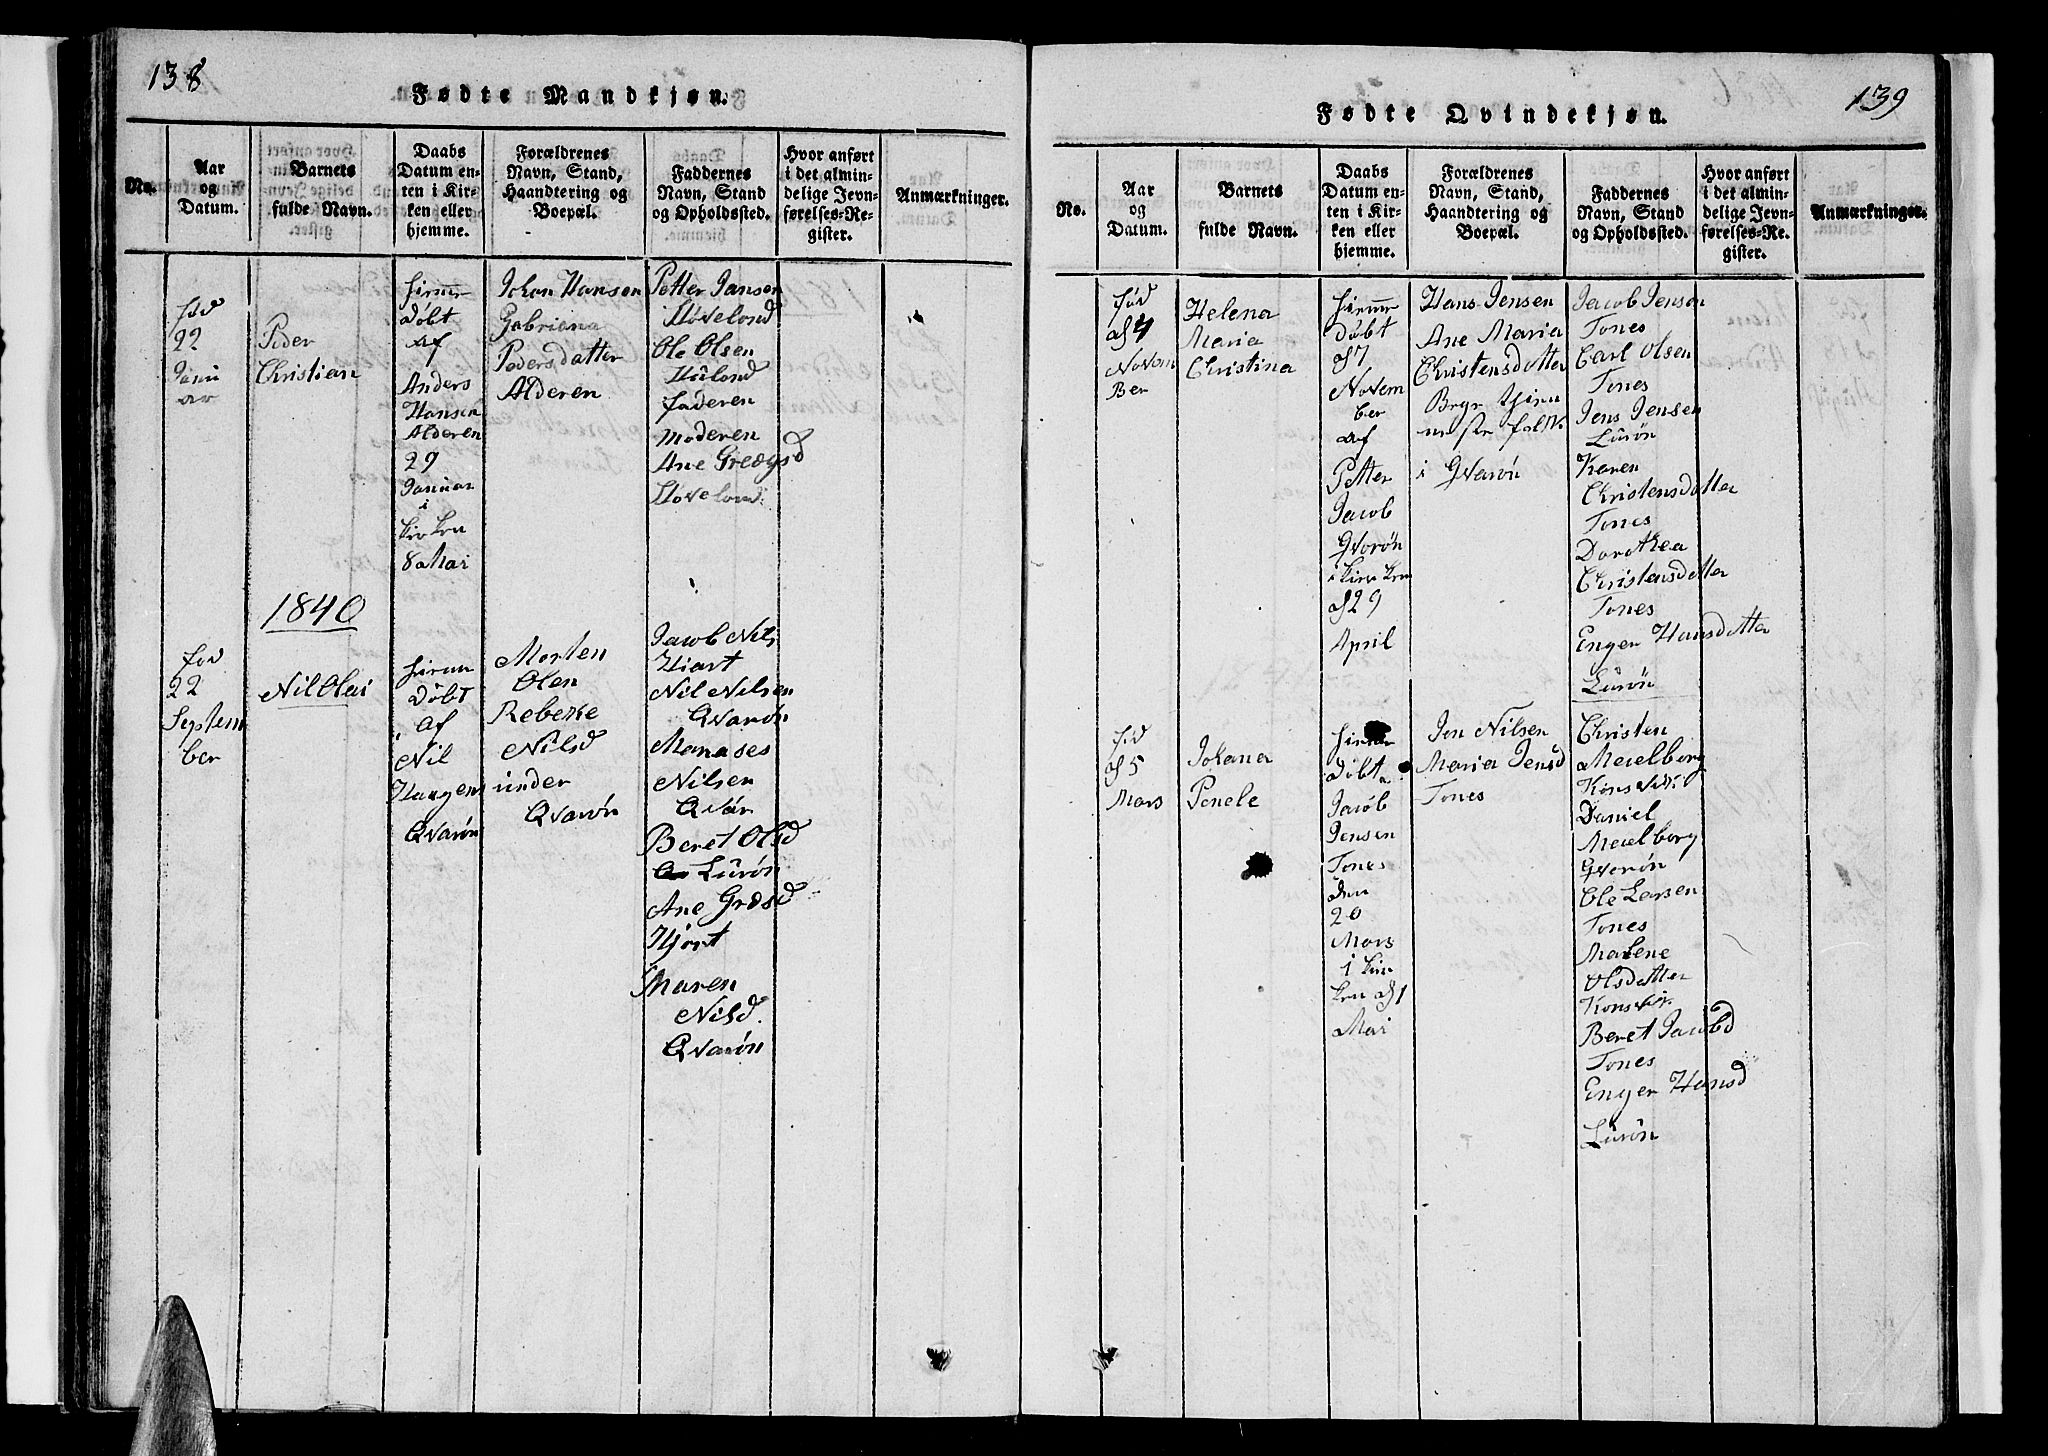 138
Fødte Mandkjøn.
No.
Aar
og
Datum.
Barnets
fulde Navn.
Daabs
Datum en-
ten i Kir-
ken eller
hjemme.
Forældrenes
Navn, Stand,
Haandtering og
Boepæl.
Faddernes
Navn, Stand
og Opholdssted.
Hvor anført
i det almin-
delige Jevn-
førelses-Re-
gister.
Anmærkninger.
22
Janu
ar
Peder
Christian
Døbt
af
Anders
Hansen
Alderen
29
Januar
i
kirken
8 Mai
Johan Hansen
Gabriena
Pedersdatter
Alderen
Petter Jansen
Hovelond
Ole Olsen
faderen
moderen
Hovelond
1840
fød
22
Septem
ber
Nil Olai
Døbt
af
Nil
Haagens
Qvarøn
Morten
Olen
Nilsd
under
Qvarøn
Jacob Nils
Hiort
Nil Nilsen
Qvarøn
Manases
Nilsen
Qvar
Beret Olsd
Lurøn
Ane Grdsd
Hjort
Maren
Nilsd
Qvarøn
139
Fødte Qvindekjøn.
No.
Aar
og
Datum.
Barnets
fulde Navn.
Daabs
Datum en-
ten i Kir-
ken eller
hjemme.
Forældrenes
Navn, Stand,
Haandtering og
Boepæl.
Faddernes
Navn, Stand
og Opholdssted.
Hvor anført
i det almin-
delige Jevn-
førelses-Re-
gister.
Anmærkninger.
fød
d 4
Novem
Ber
Helena
Maria
Christina
Døbt
d 7
Novem
ber
af
Petter
Jacob
Qvarøn
i kirken
d 29
April
Hans Jensen
Ane Maria
Christensdatter
i Qvarøn
Jacob Jensen
Tones
Carl Olsen
Tones
Jens Jensen
Lurøn
Karen
Christensdatter
Tones
Dorothea
Christensdatter
Tones
Enger Hansdatter
Lurøn
fød
d 5
Mars
Johana
Penele
Døbt a
Jacob
Jensen
Tones
den
20
Mars
i kir
ken d 1
Mai
Jon Nilsen
Maria Jensd
Tones
Christen
Meielborg
Konsvik
Daniel
Meielborg
Qvarøn
Ole Larsen
Tones
Marlene
Olsdatter
Konsvik
Beret Jacobd
Tones
Enger Hansd
Lurøn